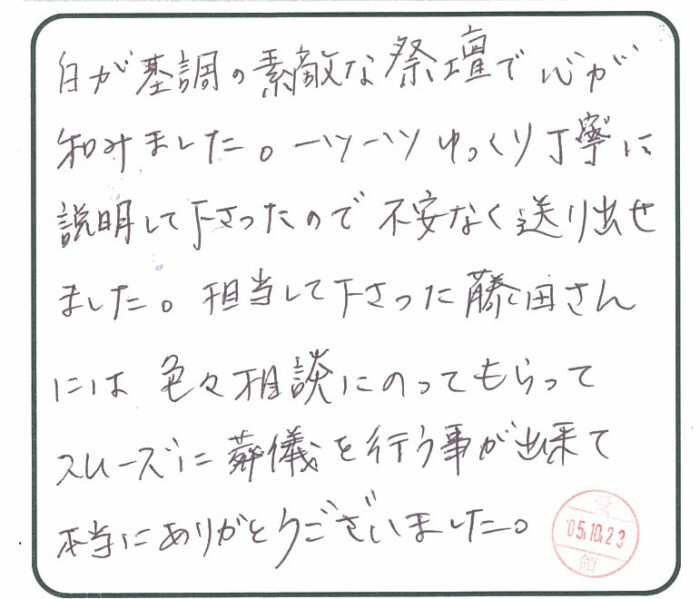 白が基調の素敵な祭壇で心が
和みました。一ツ一ツゆっくり丁寧に
説明して下さったので不安なく送り出せ
ました。担当して下さった藤田さん
には色々相談にのってもらって
スムーズに葬儀を行う事が出来て
本当にありがとうございました。
受
'05.10.23
領